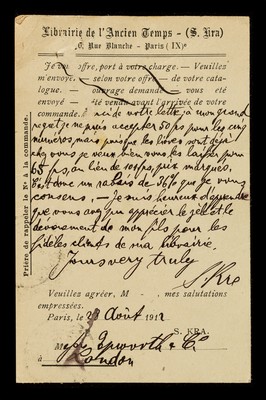 Librairie de l'Ancien Temps - (S. Kra)
6, Rue Blanche - Paris (IX)e
Je offre, port à votre charge. — Veuillez
m'envoyer selon votre offre — de votre cata-
logue. — ouvrage demandé — vous été
envoyé — été vendu avant l'arrivée de votre
commande. reçu de votre lettre, à mon grand
regret je ne puis accepter 50 frs pour les cinq
numéros, mais puisque les livres sont déjà
chez vous je veux bien vous les laisser pour
65 frs, au lieu de frs, prix marqués.
C'est donc un rabais de que je vous
consens. — Je suis heureux d'apprendre
que vous avez pu apprécier le zèle et le
dévouement de mon fils pour les
fidèles clients de ma librairie.
Yours very truly
S. Kra
Veuillez agréer, M , mes salutations
empressées.
Paris, le 23 Août 1912
S. KRA.
M Epworth & Co
à London
Prière de rappeler le No à la commande.